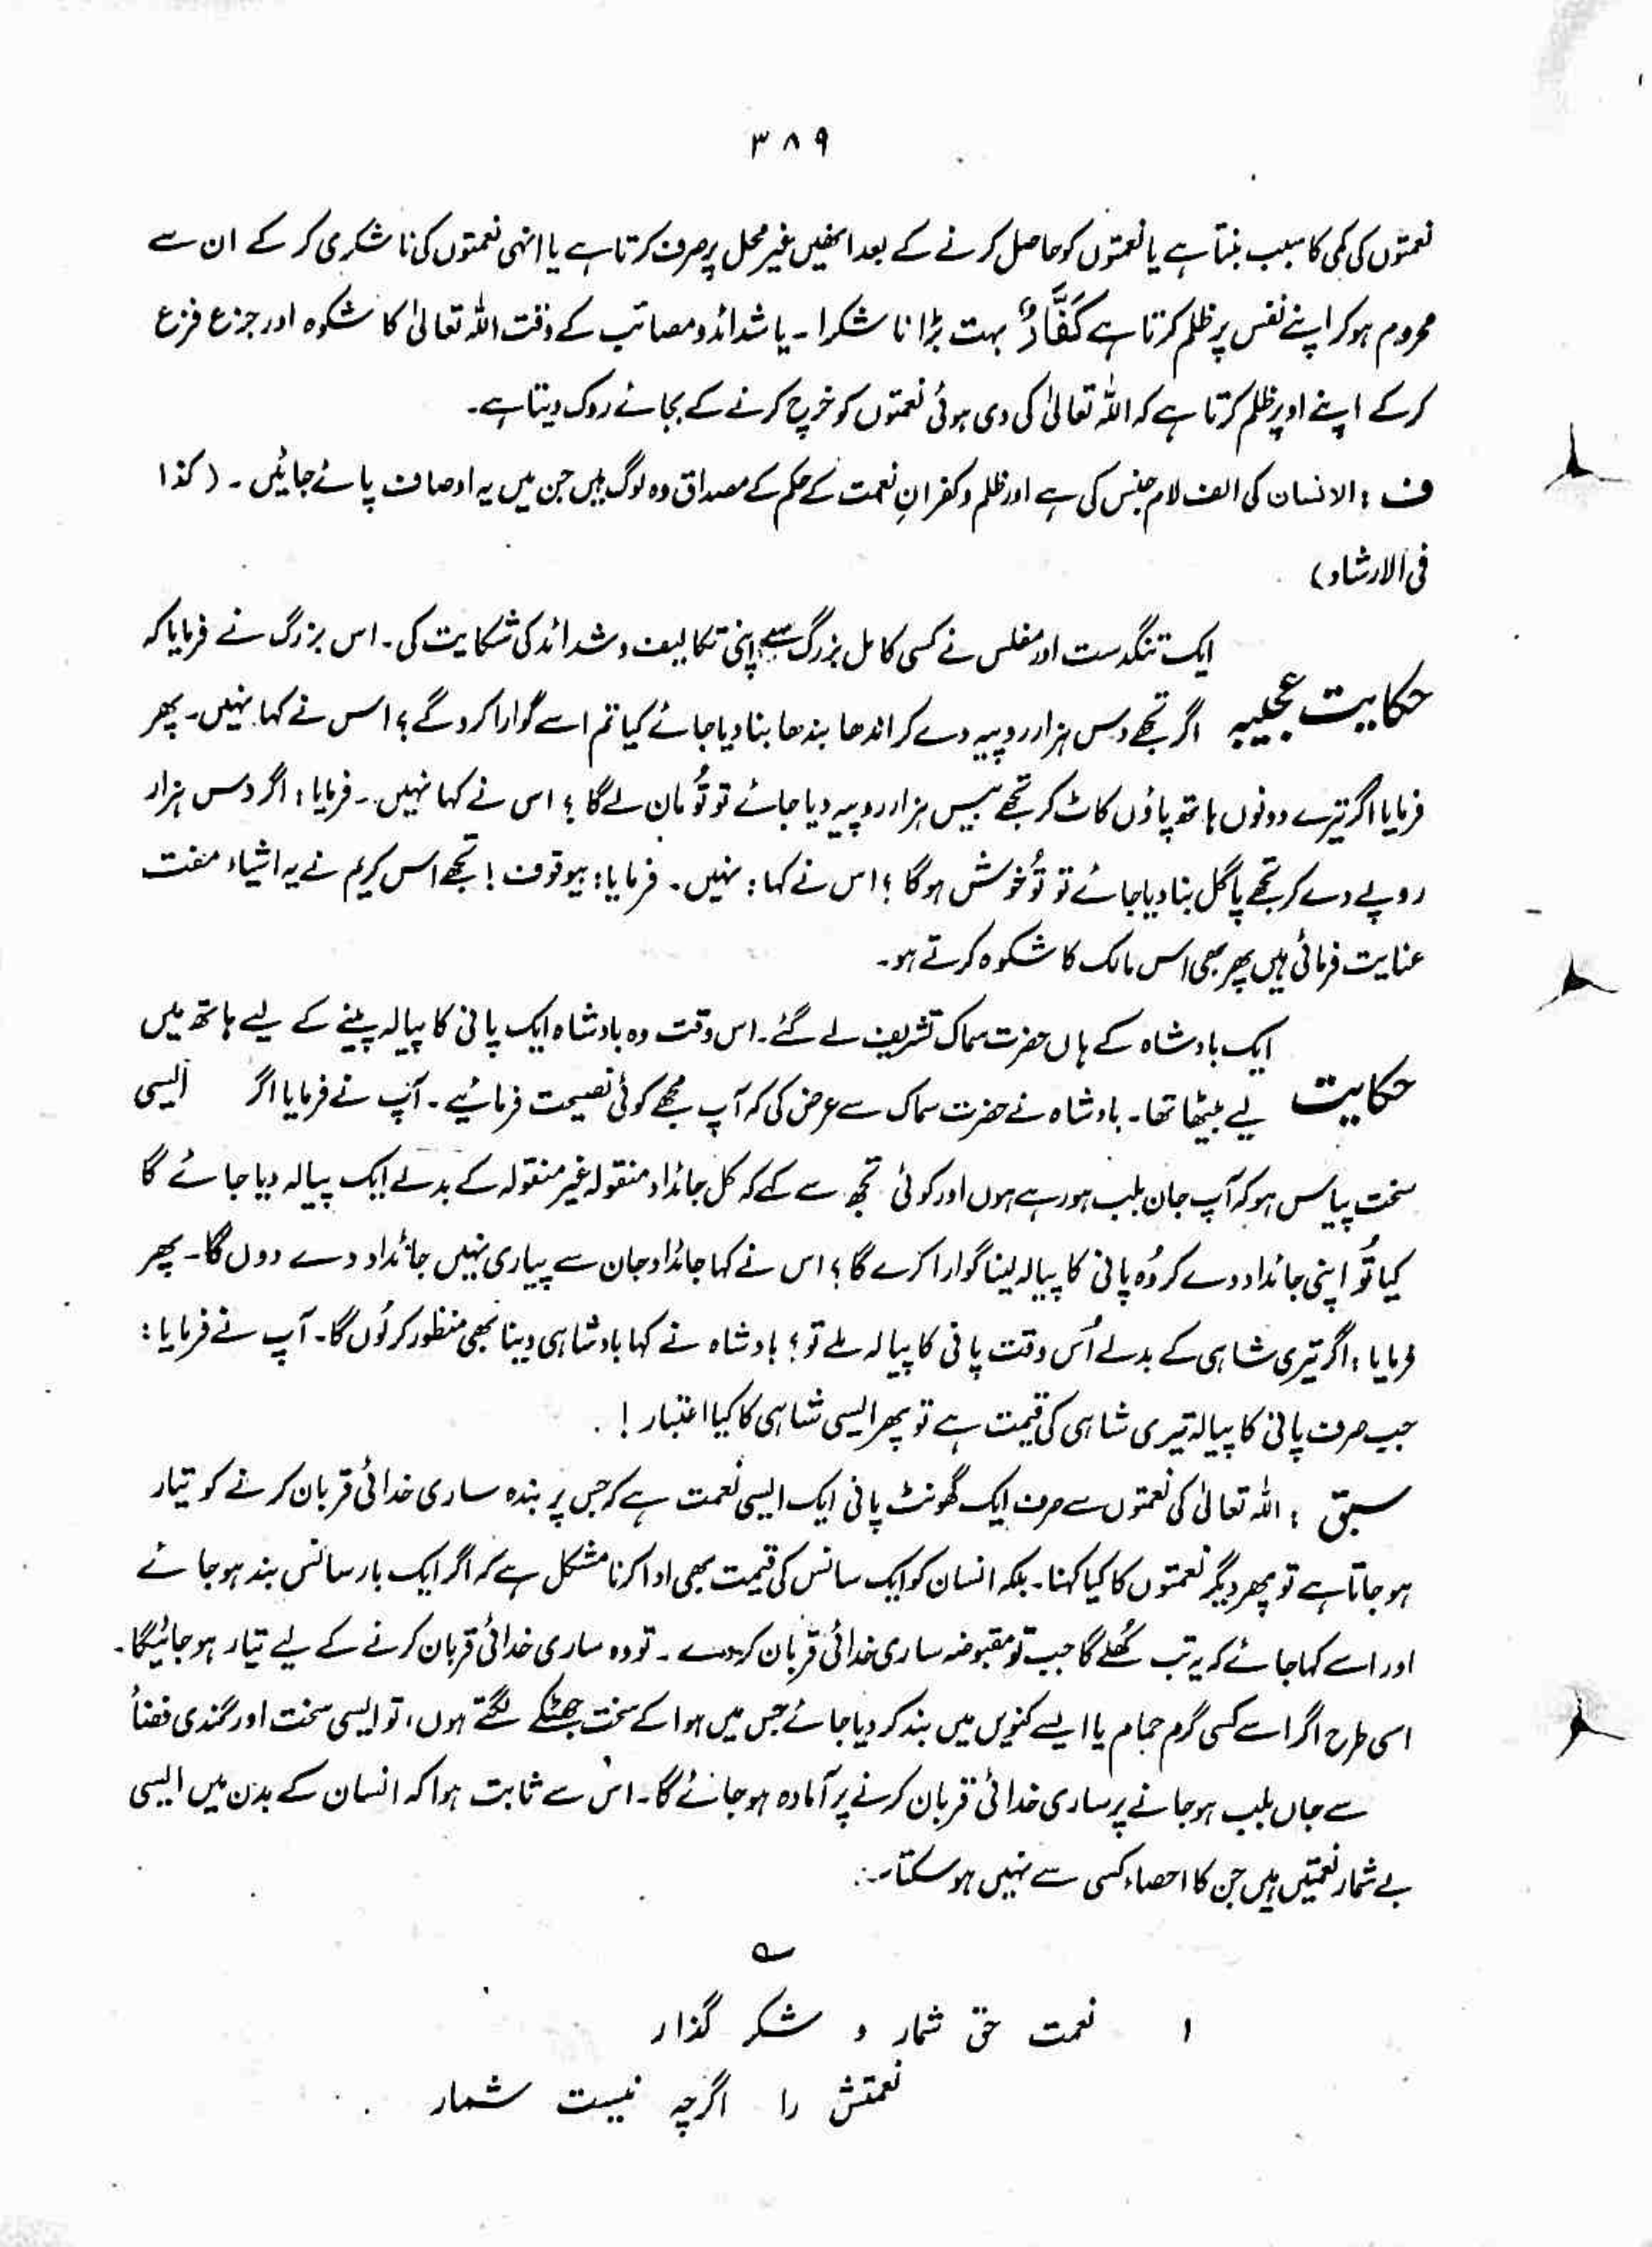 ۳۸۹
نعمتوں کی کمی کا سبب بنتا ہے یا نعمتوں کو حاصل کرنے کے بعد انھیں غیر محل پر صرف کرتا ہے یا انہی نعمتوں کی ناشکری کر کے ان سے
محروم ہو کر اپنے نفس پر ظلم کرتا ہے کَفَّارٌ بہت بڑا ناشکرا ۔ یا شدائد و مصائب کے وقت اللہ تعالیٰ کا شکوہ اور جزع فزع
کر کے اپنے اوپر ظلم کرتا ہے کہ اللہ تعالیٰ کی دی ہوئی نعمتوں کو خرچ کرنے کے بجائے روک دیتا ہے۔
ف : الانسان کی الف لام جنس کی ہے اور ظلم و کفرانِ نعمت کے حکم کے مصداق وہ لوگ ہیں جن میں یہ اوصاف پائے جائیں ۔ (کذا
فی الارشاد)
ایک تنگدست اور مفلس نے کسی کامل بزرگ سے اپنی تکالیف و شدائد کی شکایت کی۔ اس بزرگ نے فرمایا کہ
حکایت عجیبہ اگر تجھے دس ہزار روپیہ دے کر اندھا بندھا بنا دیا جائے کیا تم اسے گوارا کرو گے ؟ اس نے کہا نہیں۔ پھر
فرمایا اگر تیرے دونوں ہاتھ پاؤں کاٹ کر تجھے بیس ہزار روپیہ دیا جائے تو تُو مان لے گا ؟ اس نے کہا نہیں۔ فرمایا : اگر دس ہزار
روپے دے کر تجھے پاگل بنا دیا جائے تو تُو خوش ہوگا ؟ اس نے کہا : نہیں۔ فرمایا : بیوقوف ! تجھے اس کریم نے یہ اشیاء مفت
عنایت فرمائی ہیں پھر بھی اس مالک کا شکوہ کرتے ہو۔
ایک بادشاہ کے ہاں حضرت سماک تشریف لے گئے۔ اس وقت وہ بادشاہ ایک پانی کا پیالہ پینے کے لیے ہاتھ میں
حکایت لیے بیٹھا تھا۔ بادشاہ نے حضرت سماک سے عرض کی کہ آپ مجھے کوئی نصیحت فرمائیے۔ آپ نے فرمایا اگر ایسی
سخت پیاس ہو کہ آپ جان بلب ہو رہے ہوں اور کوئی تجھ سے کہے کہ کل جائداد منقولہ غیر منقولہ کے بدلے ایک پیالہ دیا جائے گا
کیا تُو اپنی جائداد دے کر وُہ پانی کا پیالہ لینا گوارا کرے گا ؟ اس نے کہا جائداد جان سے پیاری نہیں جائداد دے دوں گا۔ پھر
فرمایا : اگر تیری شاہی کے بدلے اُس وقت پانی کا پیالہ ملے تو ؟ بادشاہ نے کہا بادشاہی دینا بھی منظور کر لُوں گا۔ آپ نے فرمایا :
جب صرف پانی کا پیالہ تیری شاہی کی قیمت ہے تو پھر ایسی شاہی کا کیا اعتبار !
سبق : اللہ تعالیٰ کی نعمتوں سے صرف ایک گھونٹ پانی ایک ایسی نعمت ہے کہ جس پر بندہ ساری خدائی قربان کرنے کو تیار
ہو جاتا ہے تو پھر دیگر نعمتوں کا کیا کہنا۔ بلکہ انسان کو ایک سانس کی قیمت بھی ادا کرنا مشکل ہے کہ اگر ایک بار سانس بند ہو جائے
اور اسے کہا جائے کہ یہ تب کُھلے گا جب تو مقبوضہ ساری خدائی قربان کر دے ۔ تو وہ ساری خدائی قربان کرنے کے لیے تیار ہو جائیگا۔
اسی طرح اگر اسے کسی گرم حمام یا ایسے کنویں میں بند کر دیا جائے جس میں ہوا کے سخت جھٹکے لگتے ہوں، تو ایسی سخت اور گندی فضأ
سے جاں بلب ہو جانے پر ساری خدائی قربان کرنے پر آمادہ ہو جائے گا۔ اس سے ثابت ہوا کہ انسان کے بدن میں ایسی
بے شمار نعمتیں ہیں جن کا احصاء کسی سے نہیں ہو سکتا۔
؎
۱ نعمت حق شمار و شکر گذار
نعمتش را اگرچہ نیست شمار